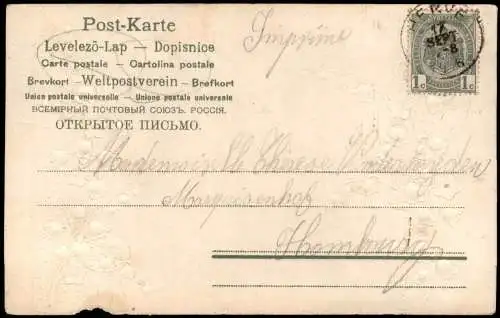 Post-Karte
Levelezö-Lap — Dopisnice
Carte postale — Cartolina postale
Brevkort — Weltpostverein — Brefkort
Union postale universelle — Unione postale universale
ВСЕМІРНЫЙ ПОЧТОВЫЙ СОЮЗЪ. РОССІЯ.
ОТКРЫТОЕ ПИСЬМО.
Imprimé
HERVE
17
SEPT
8
1c 1c
Mademoiselle Thérèse
Marquisenhof
Hombourg